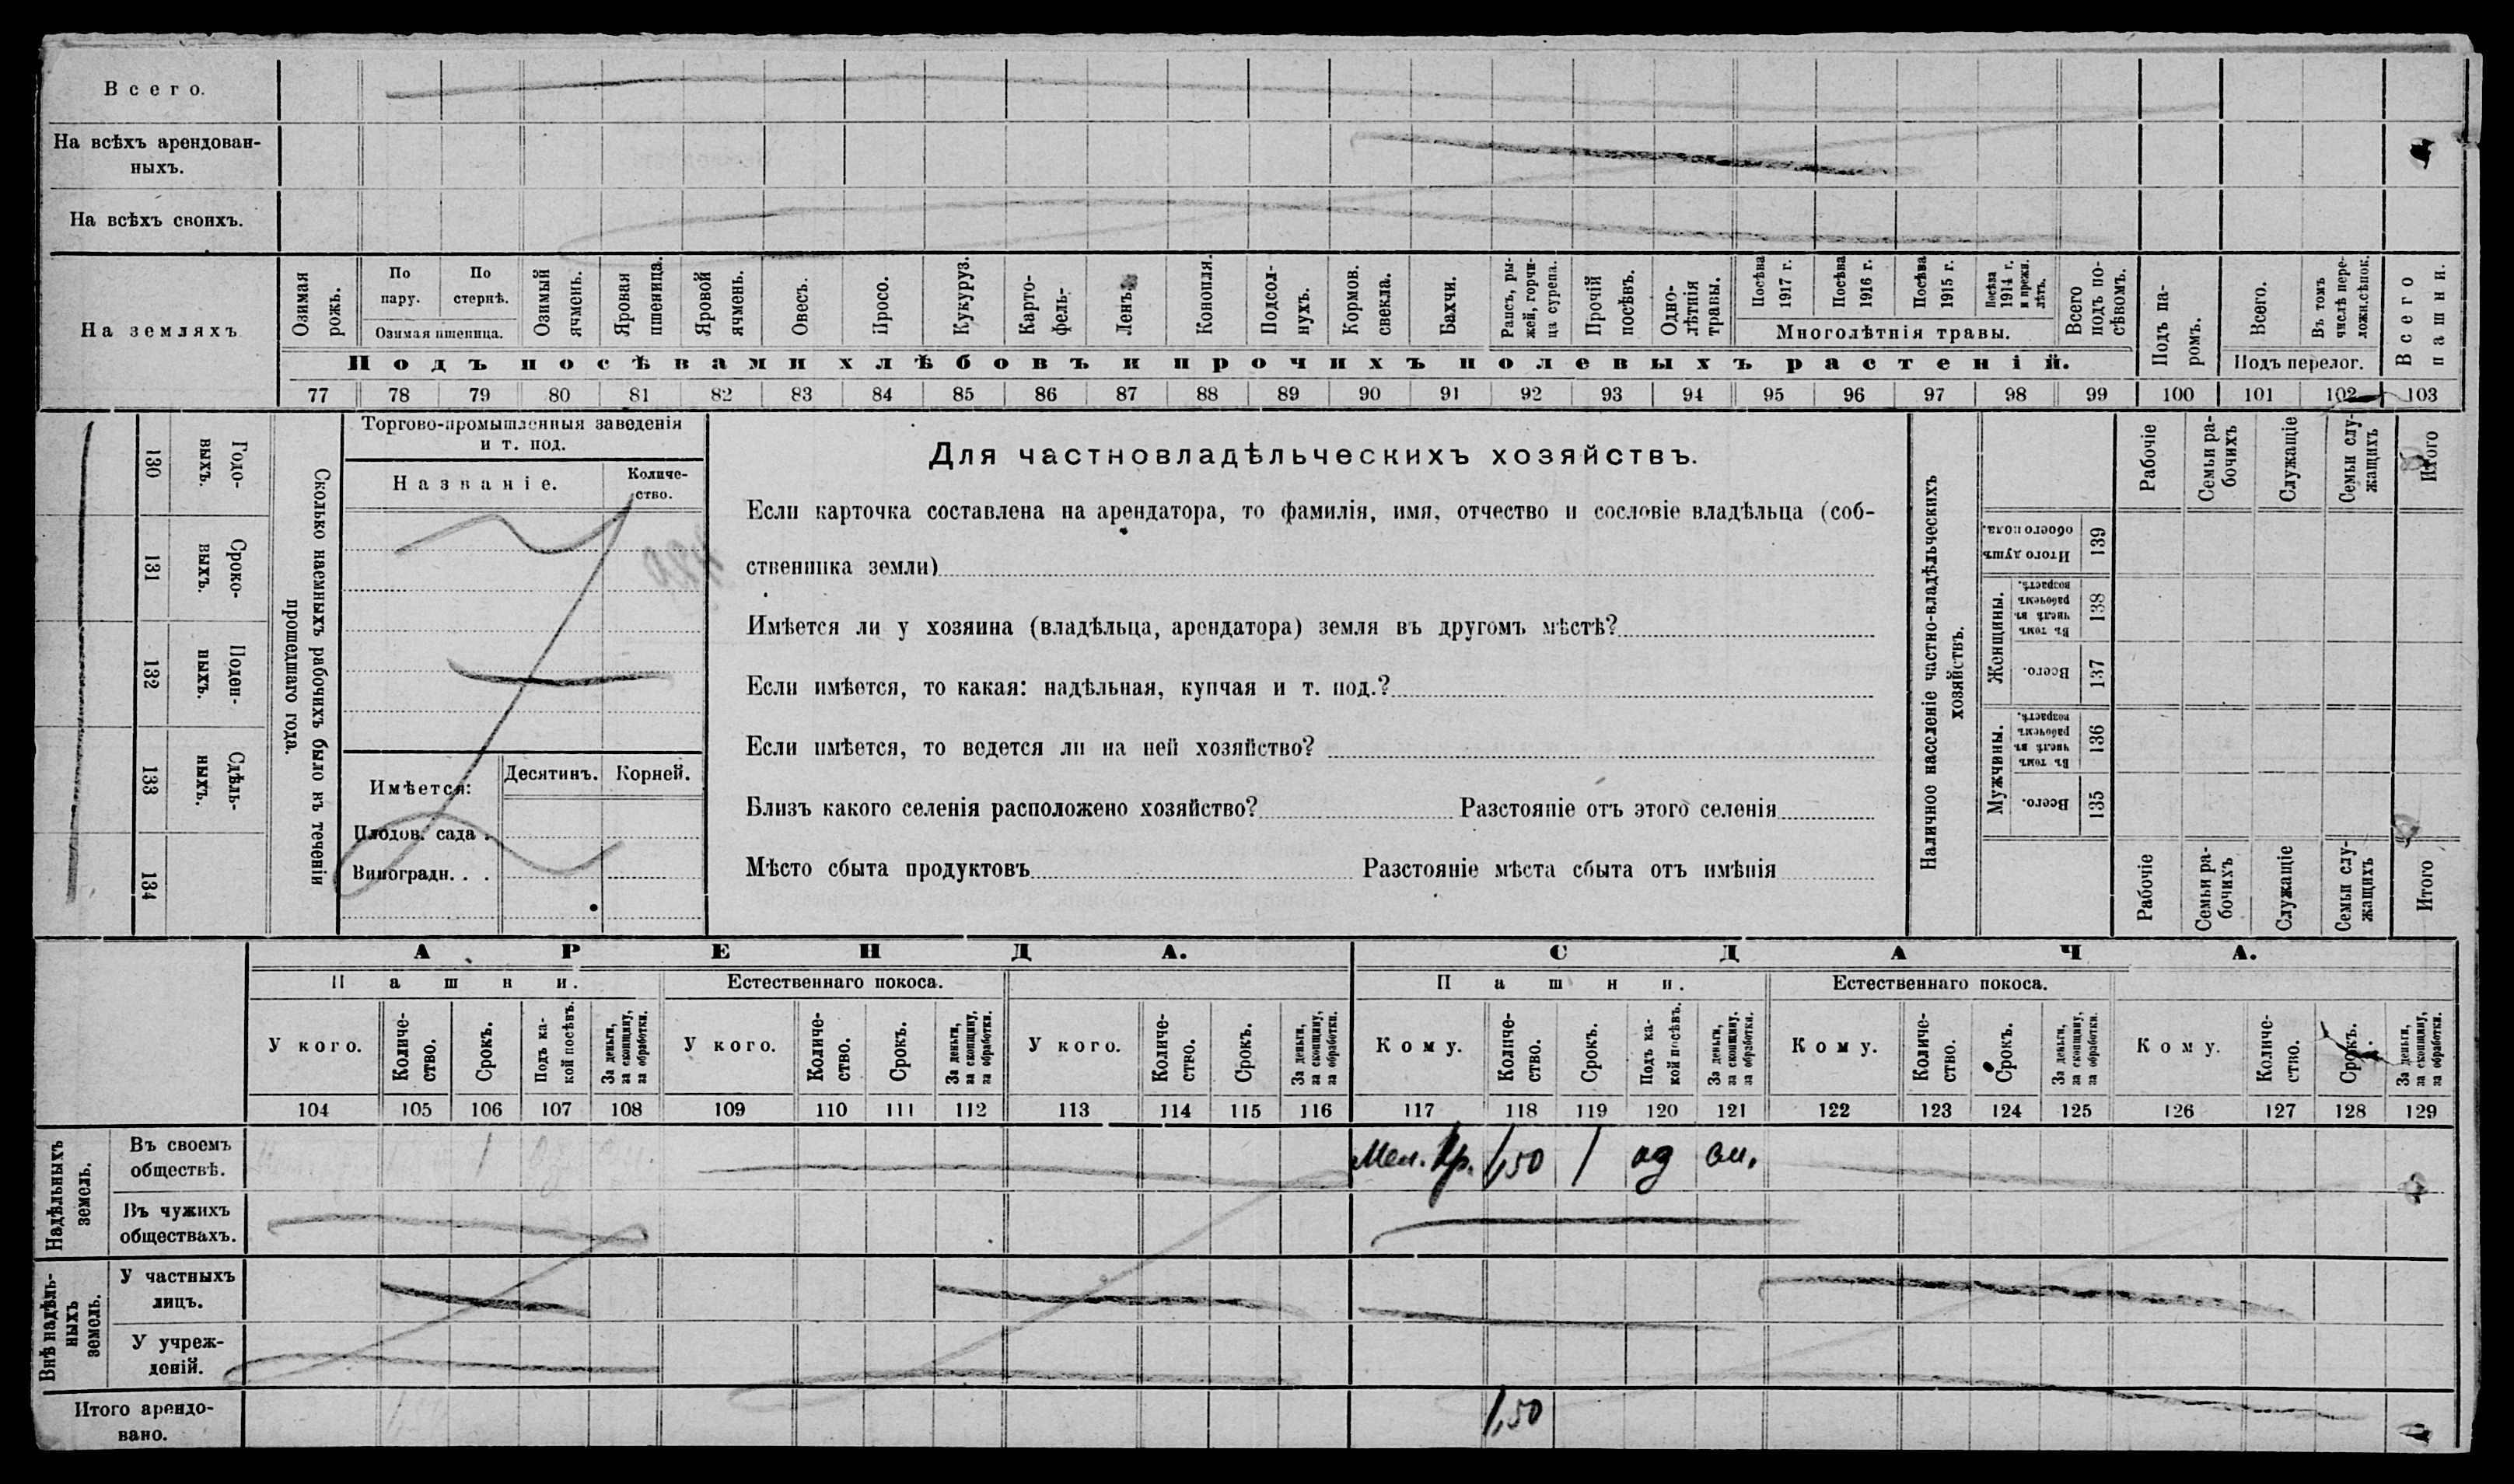 Всего.
На всѣхъ арендован-
ныхъ.
На всѣхъ своихъ.
На земляхъ
Озимая рожь.
По пару.
По стернѣ.
Озимая пшеница.
Озимый ячмень.
Яровая пшеница.
Яровой ячмень.
Овесъ.
Просо.
Кукуруз.
Карто-
фель-
Ленъ.
Конопля.
Подсол-
нухъ.
Кормов. свекла.
Бахчи.
Рапсъ, ры-
жей, горчи-
ца сурепа.
Прочій посѣвъ.
Одно-
лѣтнія травы.
Посѣва 1917 г.
Посѣва 1916 г.
Посѣва 1915 г.
Посѣва 1914 г. и прежн. лѣтъ.
Многолѣтнія травы.
Всего подъ по-
сѣвомъ.
Подъ па-
ромъ.
Всего.
Въ томъ числѣ пере-
ложн.сѣнок.
Подъ перелог.
Всего пашни.
Подъ посѣвами хлѣбовъ и прочихъ полевыхъ растеній.
77 78 79 80 81 82 83 84 85 86 87 88 89 90 91 92 93 94 95 96 97 98 99 100 101 102 103
130 Годо-
выхъ.
131 Сроко-
выхъ.
132 Поден-
ныхъ.
133 Сдѣль-
ныхъ.
134
Сколько наемныхъ рабочихъ было въ теченіи
прошедшаго года.
Торгово-промышленныя заведенія
и т. под.
Названіе.
Количе-
ство.
Имѣется:
Десятинъ.
Корней.
Плодов. сада .
Виноградн. . .
Для частновладѣльческихъ хозяйствъ.
Если карточка составлена на арендатора, то фамилія, имя, отчество и сословіе владѣльца (соб-
ственника земли)
Имѣется ли у хозяина (владѣльца, арендатора) земля въ другомъ мѣстѣ?
Если имѣется, то какая: надѣльная, купчая и т. под.?
Если имѣется, то ведется ли на ней хозяйство?
Близъ какого селенія расположено хозяйство? Разстояніе отъ этого селенія
Мѣсто сбыта продуктовъ Разстояніе мѣста сбыта отъ имѣнія
Наличное населеніе частно-владѣльческихъ
хозяйствъ.
Рабочіе
Семьи ра-
бочихъ
Служащіе
Семьи слу-
жащихъ
Итого
Итого душъ обоего пола. 139
Женщины.
Въ томъ числѣ въ рабочемъ возрастѣ. 138
Всего. 137
Мужчины.
Въ томъ числѣ въ рабочемъ возрастѣ. 136
Всего. 135
Рабочіе
Семьи ра-
бочихъ
Служащіе
Семьи слу-
жащихъ
Итого
АРЕНДА. СДАЧА.
Пашни. Естественнаго покоса. Пашни. Естественнаго покоса.
У кого.
Количе-
ство.
Срокъ.
Подъ ка-
кой посѣвъ.
За деньги, за скопщину, за обработки.
У кого.
Количе-
ство.
Срокъ.
За деньги, за скопщину, за обработки.
У кого.
Количе-
ство.
Срокъ.
За деньги, за скопщину, за обработки.
Кому.
Количе-
ство.
Срокъ.
Подъ ка-
кой посѣвъ.
За деньги, за скопщину, за обработки.
Кому.
Количе-
ство.
Срокъ.
За деньги, за скопщину, за обработки.
Кому.
Количе-
ство.
Срокъ.
За деньги, за скопщину, за обработки.
104 105 106 107 108 109 110 111 112 113 114 115 116 117 118 119 120 121 122 123 124 125 126 127 128 129
Надѣльныхъ
земель.
Въ своемъ
обществѣ.
Кр. 1,50 1
Въ чужихъ
обществахъ.
Внѣ надѣль-
ныхъ
земель.
У частныхъ
лицъ.
У учреж-
деній.
Итого арендо-
вано.
1,50